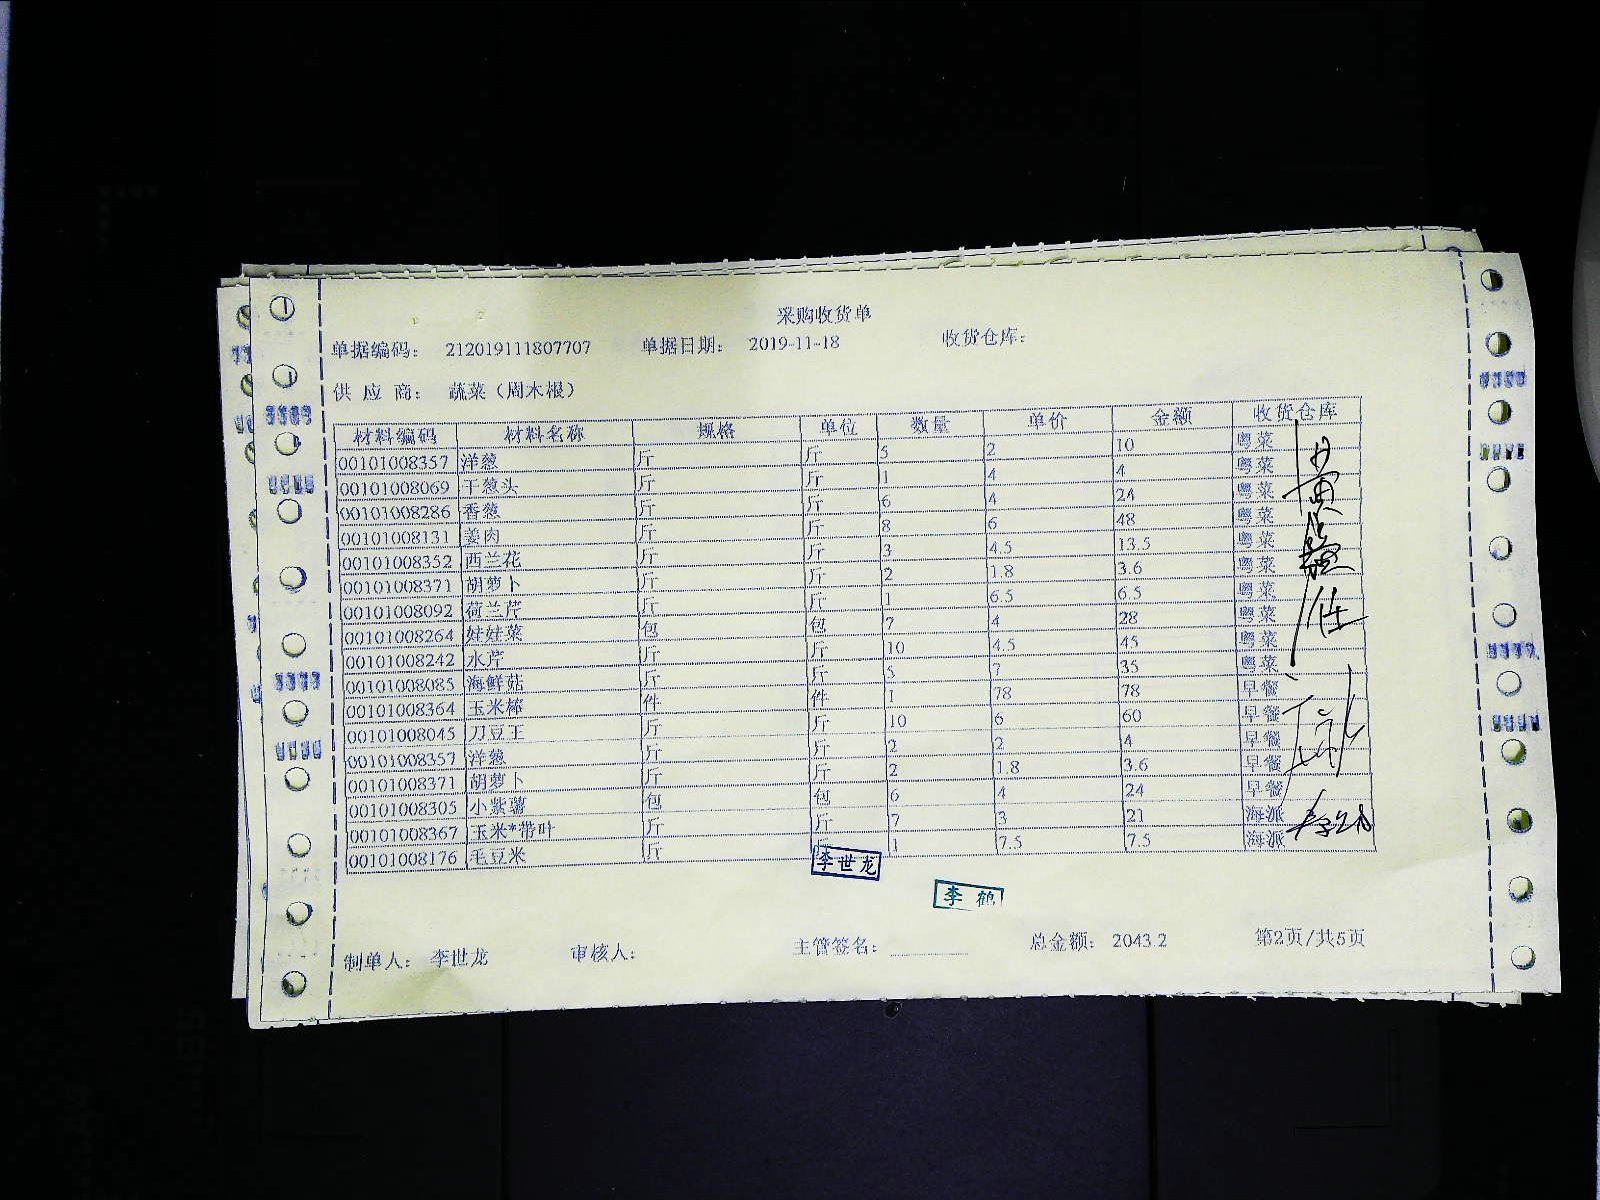 采购收货单
单据编码： 212019111807707 单据日期： 2019-11-18 收货仓库：
供 应 商： 蔬菜（周木根）
材料编码 材料名称 规格 单位 数量 单价 金额 收货仓库
00101008357 洋葱 斤 斤 5 2 10 粤菜
00101008069 干葱头 斤 斤 1 4 4 粤菜
00101008286 香葱 斤 斤 6 4 24 粤菜
00101008131 姜肉 斤 斤 8 6 48 粤菜
00101008352 西兰花 斤 斤 3 4.5 13.5 粤菜
00101008371 胡萝卜 斤 斤 2 1.8 3.6 粤菜
00101008092 荷兰芹 斤 斤 1 6.5 6.5 粤菜
00101008264 娃娃菜 包 包 7 4 28 粤菜
00101008242 水芹 斤 斤 10 4.5 45 粤菜
00101008085 海鲜菇 斤 斤 5 7 35 粤菜
00101008364 玉米棒 件 件 1 78 78 早餐
00101008045 刀豆王 斤 斤 10 6 60 早餐
00101008357 洋葱 斤 斤 2 2 4 早餐
00101008371 胡萝卜 斤 斤 2 1.8 3.6 早餐
00101008305 小紫薯 包 包 6 4 24 早餐
00101008367 玉米*带叶 斤 斤 7 3 21 海派
00101008176 毛豆米 斤 1 7.5 7.5 海派
李世龙
李鹤
制单人： 李世龙 审核人： 主管签名： 总金额： 2043.2 第2页/共5页